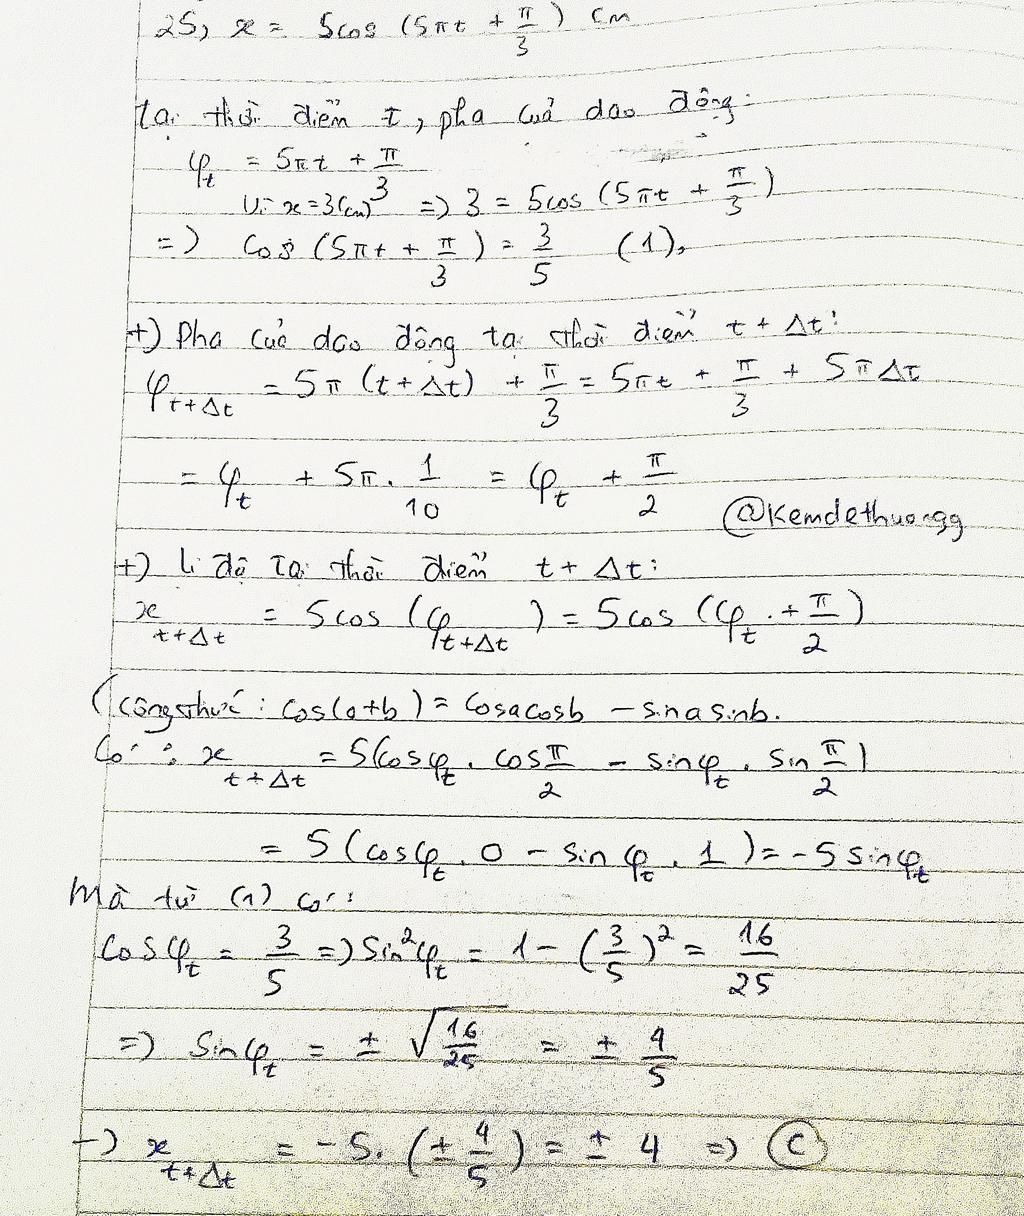 25, x = 5cos (5πt + π/3) cm
tại thời điểm t, pha của dao động:
φ_t = 5πt + π/3
Vì x=3(cm) => 3 = 5cos (5πt + π/3)
=> cos (5πt + π/3) = 3/5 (1),
+) Pha của dao động tại thời điểm t + Δt:
φ_{t+Δt} = 5π (t+Δt) + π/3 = 5πt + π/3 + 5πΔt
= φ_t + 5π. 1/10 = φ_t + π/2
@Kemdethuongg
+) li độ tại thời điểm t + Δt:
x_{t+Δt} = 5cos (φ_{t+Δt}) = 5cos (φ_t + π/2)
(công thức: cos(a+b) = cosacosb - sinasinb.
Có: x_{t+Δt} = 5(cosφ_t . cos π/2 - sinφ_t . sin π/2)
= 5 (cosφ_t . 0 - sinφ_t . 1) = -5sinφ_t
Mà từ (1) có:
cosφ_t = 3/5 => sin²φ_t = 1 - (3/5)² = 16/25
=> sinφ_t = ± √(16/25) = ± 4/5
-) x_{t+Δt} = -5. (± 4/5) = ± 4 => C